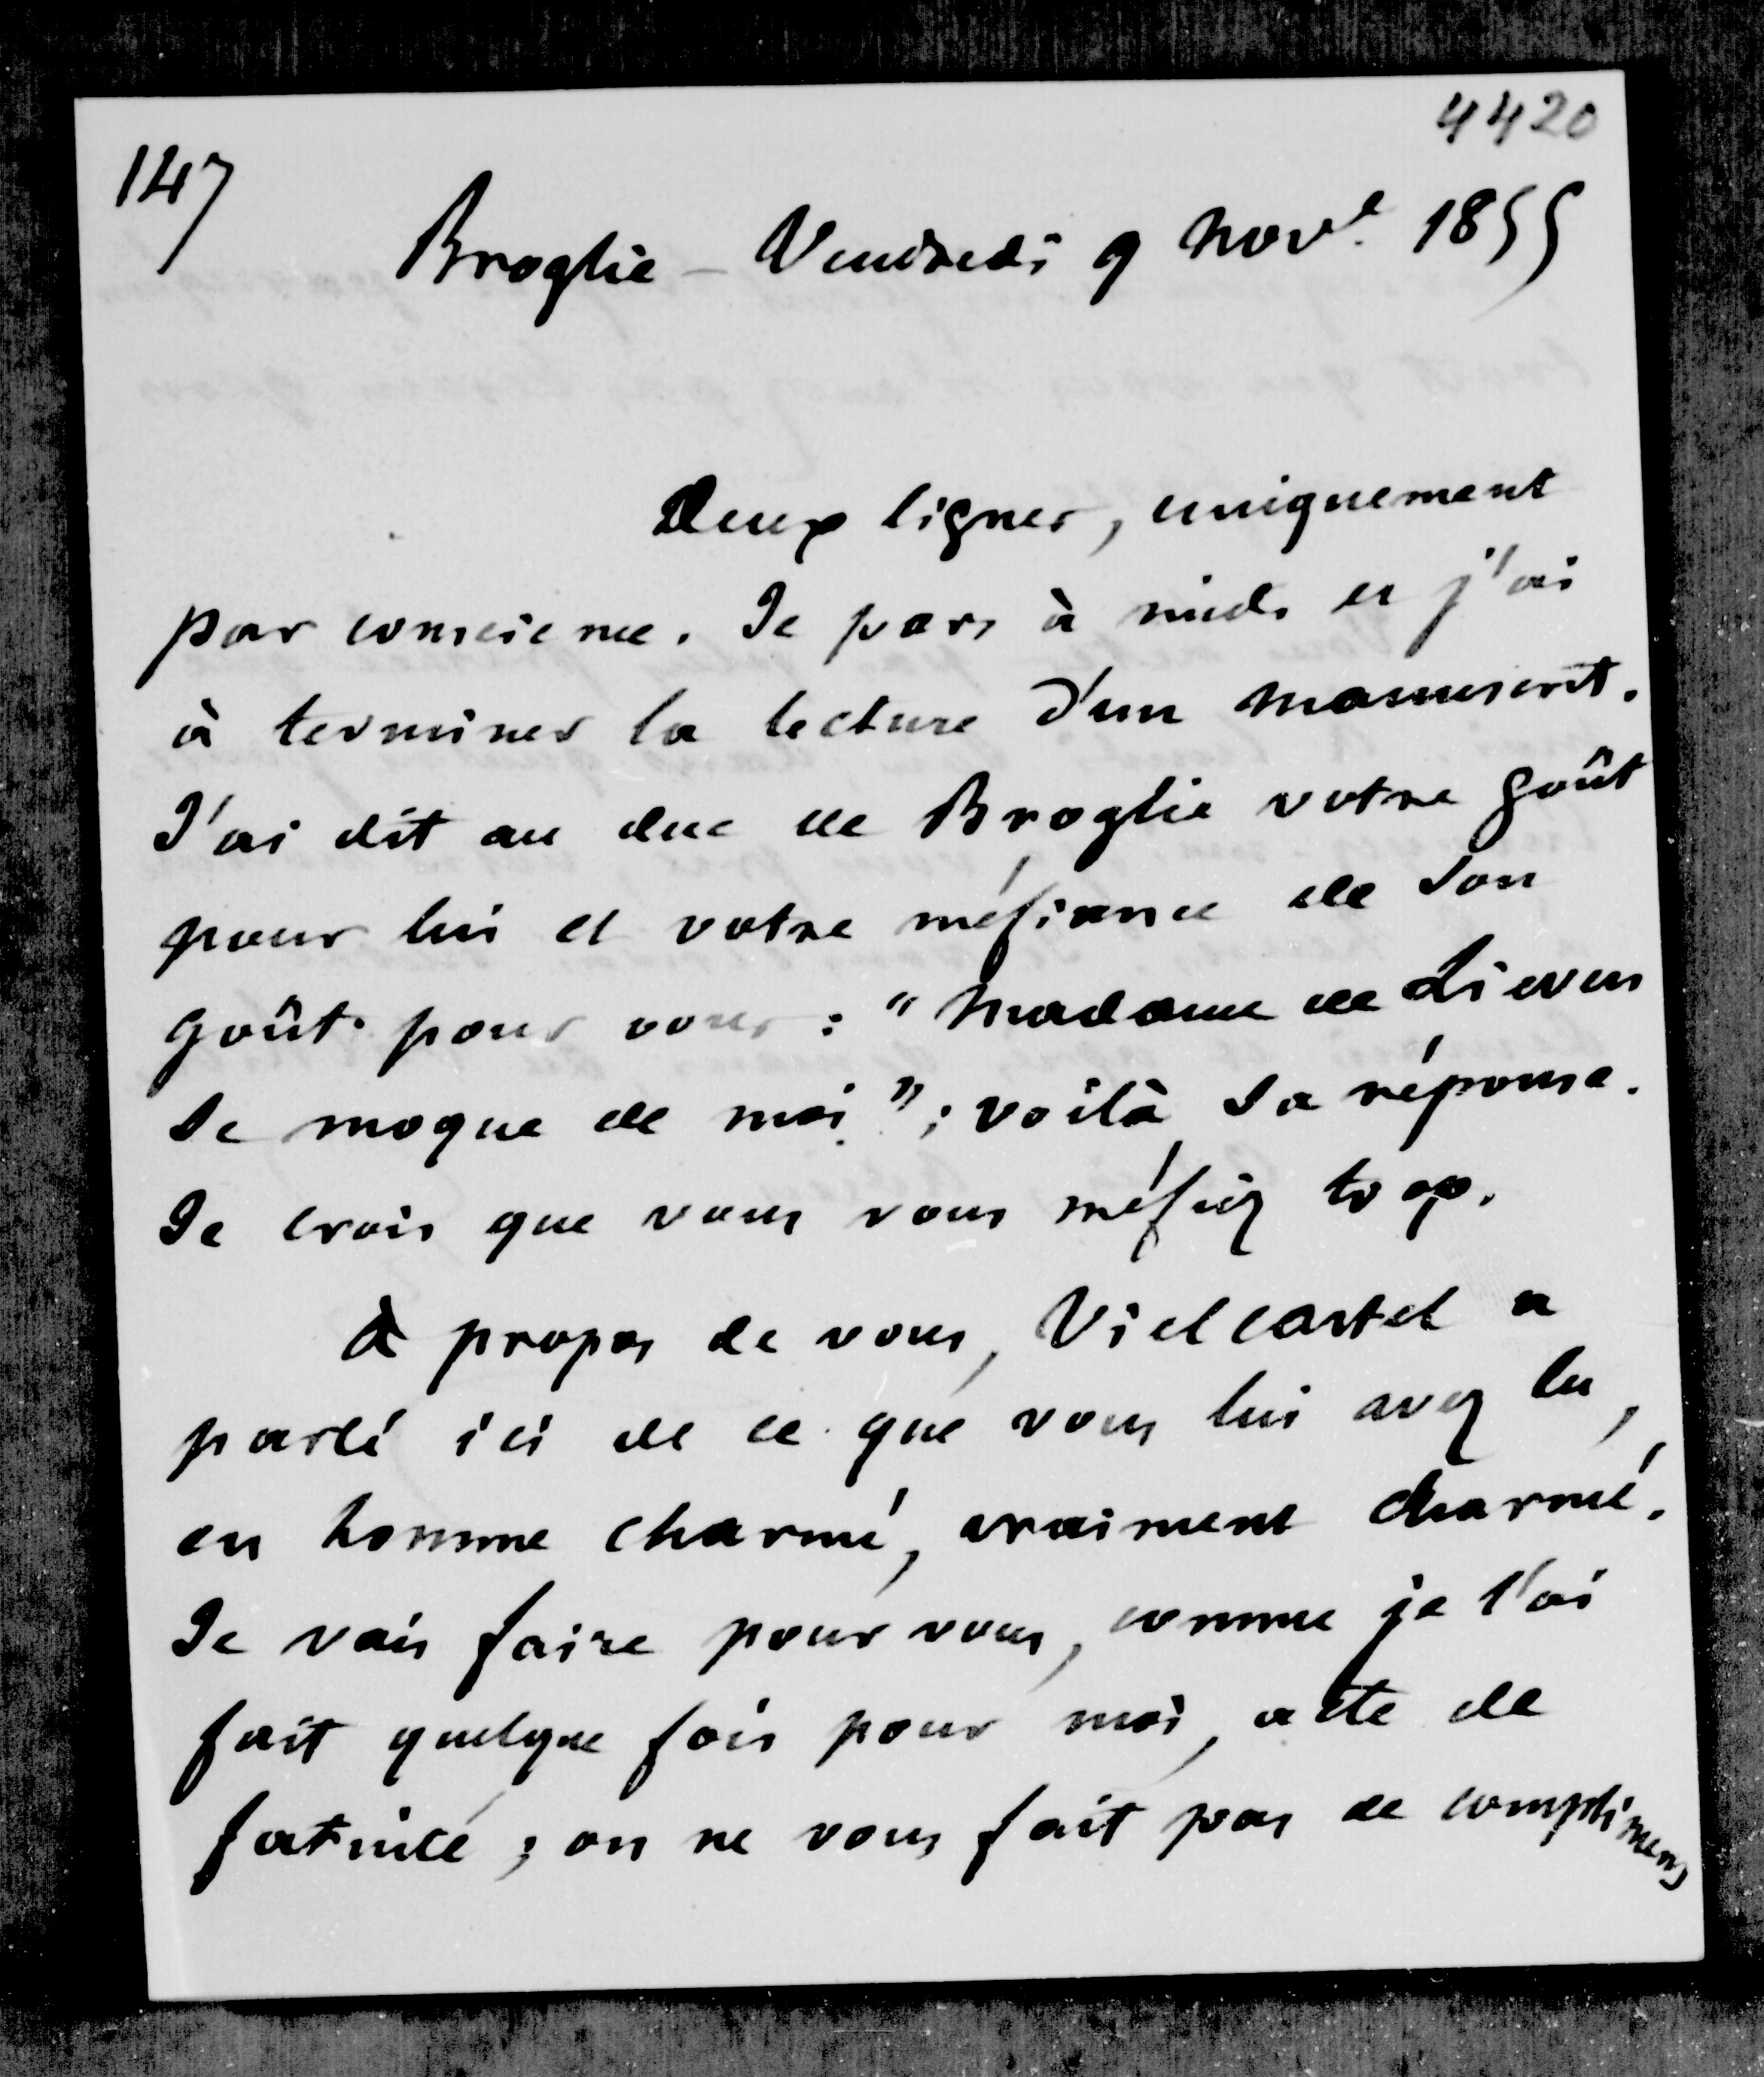 4420
147
Broglie - Vendredi 9 Novre 1855
Deux lignes, uniquement
par conscience. Je pars à midi et j'ai
à terminer la lecture d'un manuscrit.
J'ai dit au duc de Broglie votre goût
pour lui et votre méfiance de son
goût pour vous : "Madame de Lieven
se moque de moi."; voilà sa réponse.
Je crois que vous vous méfiez trop.
à propos de vous, Viel castel a
parlé ici de ce que vous lui avez lu,
en homme charmé, vraiment charmé.
Je vais faire pour vous, comme je l'ai
fait quelque fois pour moi, acte de
fatuité ; on ne vous fait pas de complimens